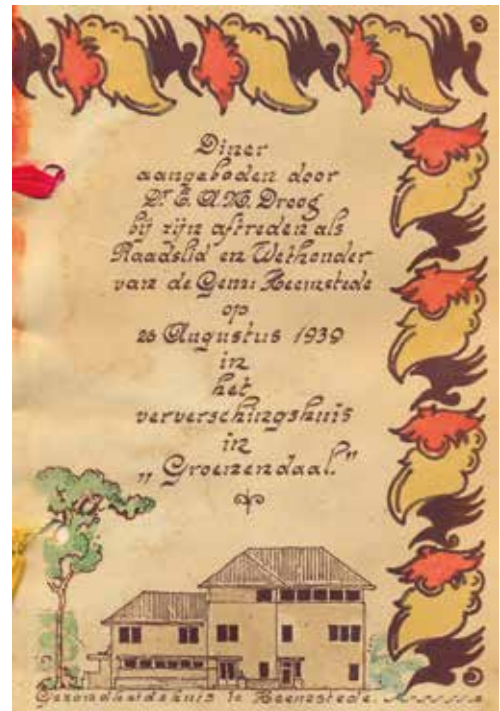 Diner
aangeboden door
Dr. E. A. M. Droog
bij zijn aftreden als
Raadslid en Wethouder
van de Gem: Heemstede
op
26 Augustus 1939
in
het
ververschingshuis
in
„Groenendaal."
Gezondheidshuis te Heemstede.